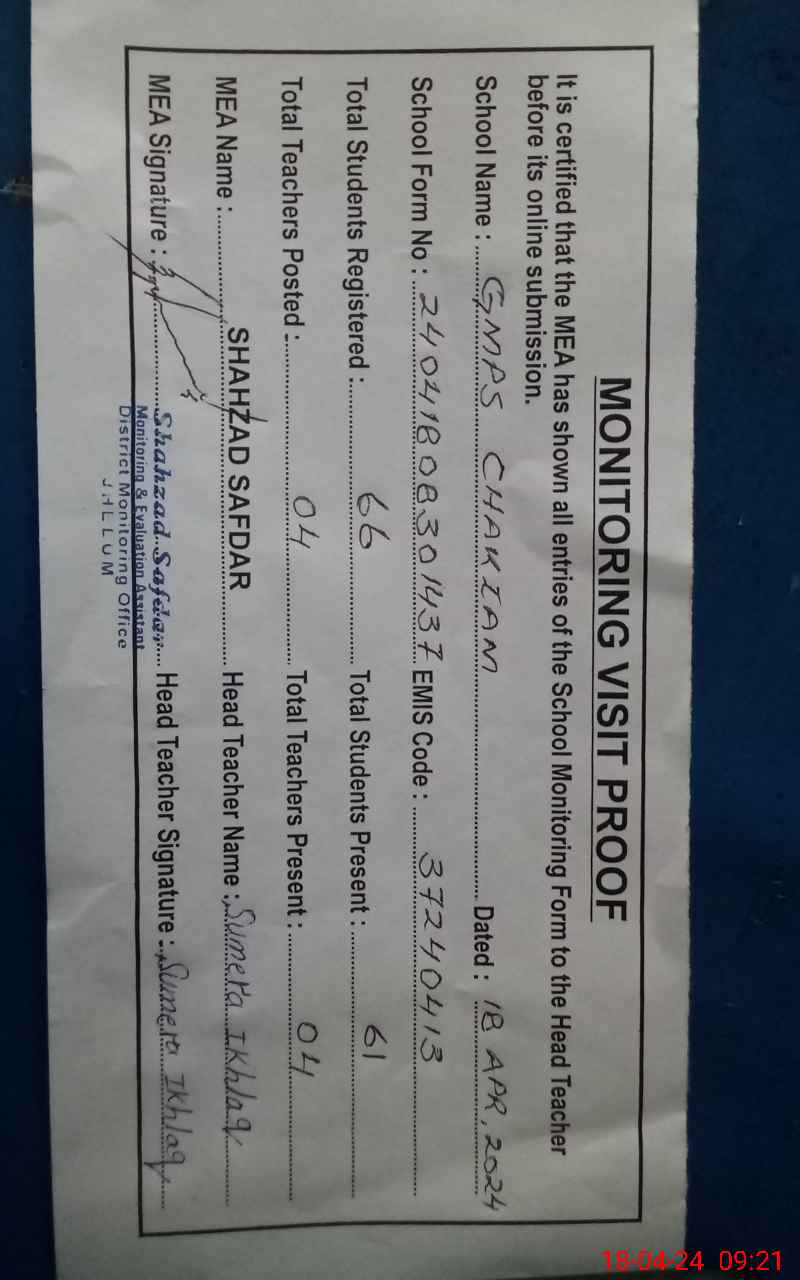 MONITORING VISIT PROOF
It is certified that the MEA has shown all entries of the School Monitoring Form to the Head Teacher
before its online submission.
School Name : GMPS CHAKIAM Dated : 18 APR, 2024
School Form No : 24041808301437 EMIS Code : 37240413
Total Students Registered : 66 Total Students Present : 61
Total Teachers Posted : 04 Total Teachers Present : 04
MEA Name : SHAHZAD SAFDAR Head Teacher Name : Sumera Ikhlaq
MEA Signature : Shahzad Safdar Head Teacher Signature : Sumera Ikhlaq
Monitoring & Evaluation Assistant
District Monitoring Office
JHELLUM
18-04-24 09:21